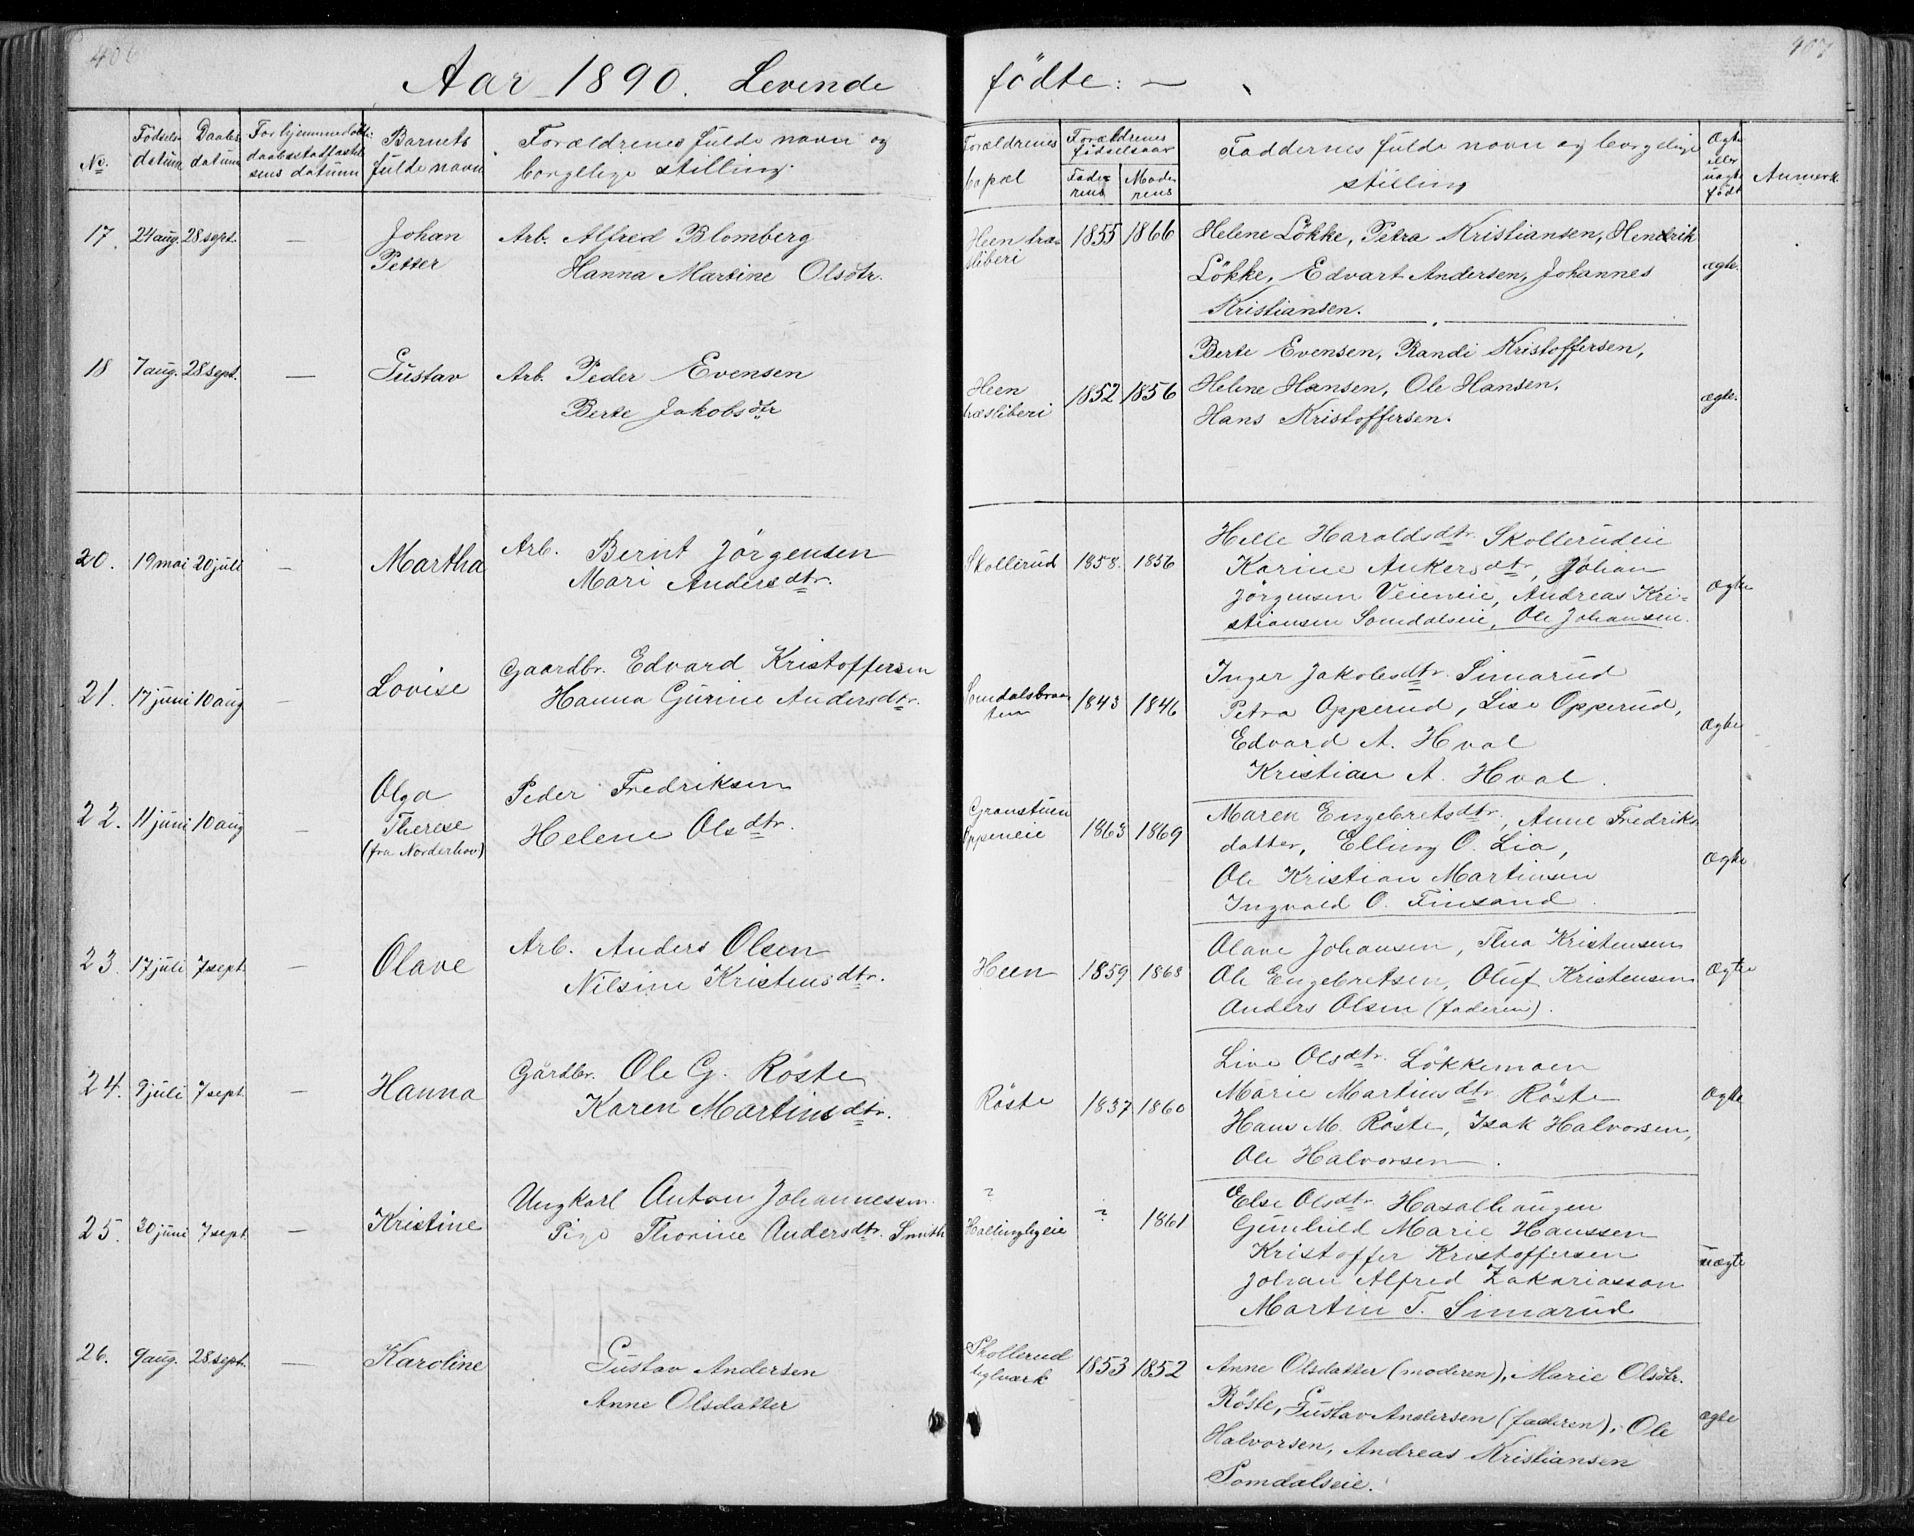 406
407
Aar 1890. Levende fødte: —
No.
Fødsels datum
Daabs datum
For hjemmedøbte: daabsstadfæstelsens datum
Barnets fulde navn
Forældrenes fulde navn og borgelige stilling.
Forældrenes bopæl
Forældrenes fødselsaar
Faderens
Moderens
Faddernes fulde navn og borgelige stilling
Ægte eller uægte født
Anmerk.
17. 24 aug. 28 sept. — Johan Petter
Arb. Alfred Blomberg
Hanna Martine Olsdtr.
Heen træsliberi 1855 1866
Helene Løkke, Petra Kristiansen, Hendrik
Løkke, Edvart Andersen, Johannes
Kristiansen.
ægte.
18 7 aug. 28 sept. — Gustav
Arb. Peder Evensen
Berte Jakobsdtr
Heen træsliberi 1852 1856
Berte Evensen, Randi Kristoffersen,
Helene Hansen, Ole Hansen,
Hans Kristoffersen.
ægte.
20. 19 mai 20 juli — Martha
Arb. Bernt Jörgensen
Mari Andersdtr.
Skollerud 1858. 1856
Helle Haraldsdtr. Skollerudeie
Karine Ankersdtr, Johan
Jörgensen Veieneie, Andreas Kri-
stiansen Somdalseie, Ole Johansen.
Ægte
21. 17 juni 10 aug — Lovise
Gaardbr. Edvard Kristoffersen
Hanna Gurine Andersdtr.
Somdalsbraaten 1843 1846
Inger Jakobsdtr. Simarud
Petra Opperud, Lise Opperud,
Edvard A. Hval
Kristian A. Hval.
Ægte
22. 11 juni 10 aug — Olga Therese (fra Norderhov)
Peder Fredriksen
Helene Olsdtr.
Granstuen Oppeneie 1863 1869
Maren Engebretsdtr., Anne Fredriks
datter, Elling O. Lia,
Ole Kristian Martinsen
Ingvald O. Finsand.
Ægte
23. 17 juli 7 sept. — Olave
Arb. Anders Olsen
Nilsine Kristensdtr.
Heen 1859 1868
Olave Johansen, Thea Kristensen
Ole Engebretsen, Oluf Kristensen
Anders Olsen (faderen).
Ægte
24. 9 juli 7 sept — Hanna
Gårdbr. Ole G. Röste
Karen Martinsdtr.
Röste 1837 1860
Live Olsdtr. Lökkemoen
Marie Martinsdtr. Röste
Hans M. Röste, Isak Halvorsen,
Ole Halvorsen.
Ægte
25. 30 juni 7 sept — Kristine
Ungkarl Anton Johannessen
Pige Thorine Andersdtr. Smith
?
Hallingbyeie ? 1861
Else Olsdtr. Hasalhaugen
Gunhild Marie Hanssen
Kristoffer Kristoffersen
Johan Alfred Zakariasson
Martin T. Simarud
uægte
26. 9 aug. 28 sept. — Karoline
Gustav Andersen
Anne Olsdatter
Skollerud teglværk 1853 1852
Anne Olsdatter (moderen), Marie Olsdtr.
Röste, Gustav Andersen (faderen), Ole
Halvorsen, Andreas Kristiansen
Somdalseie.
ægte